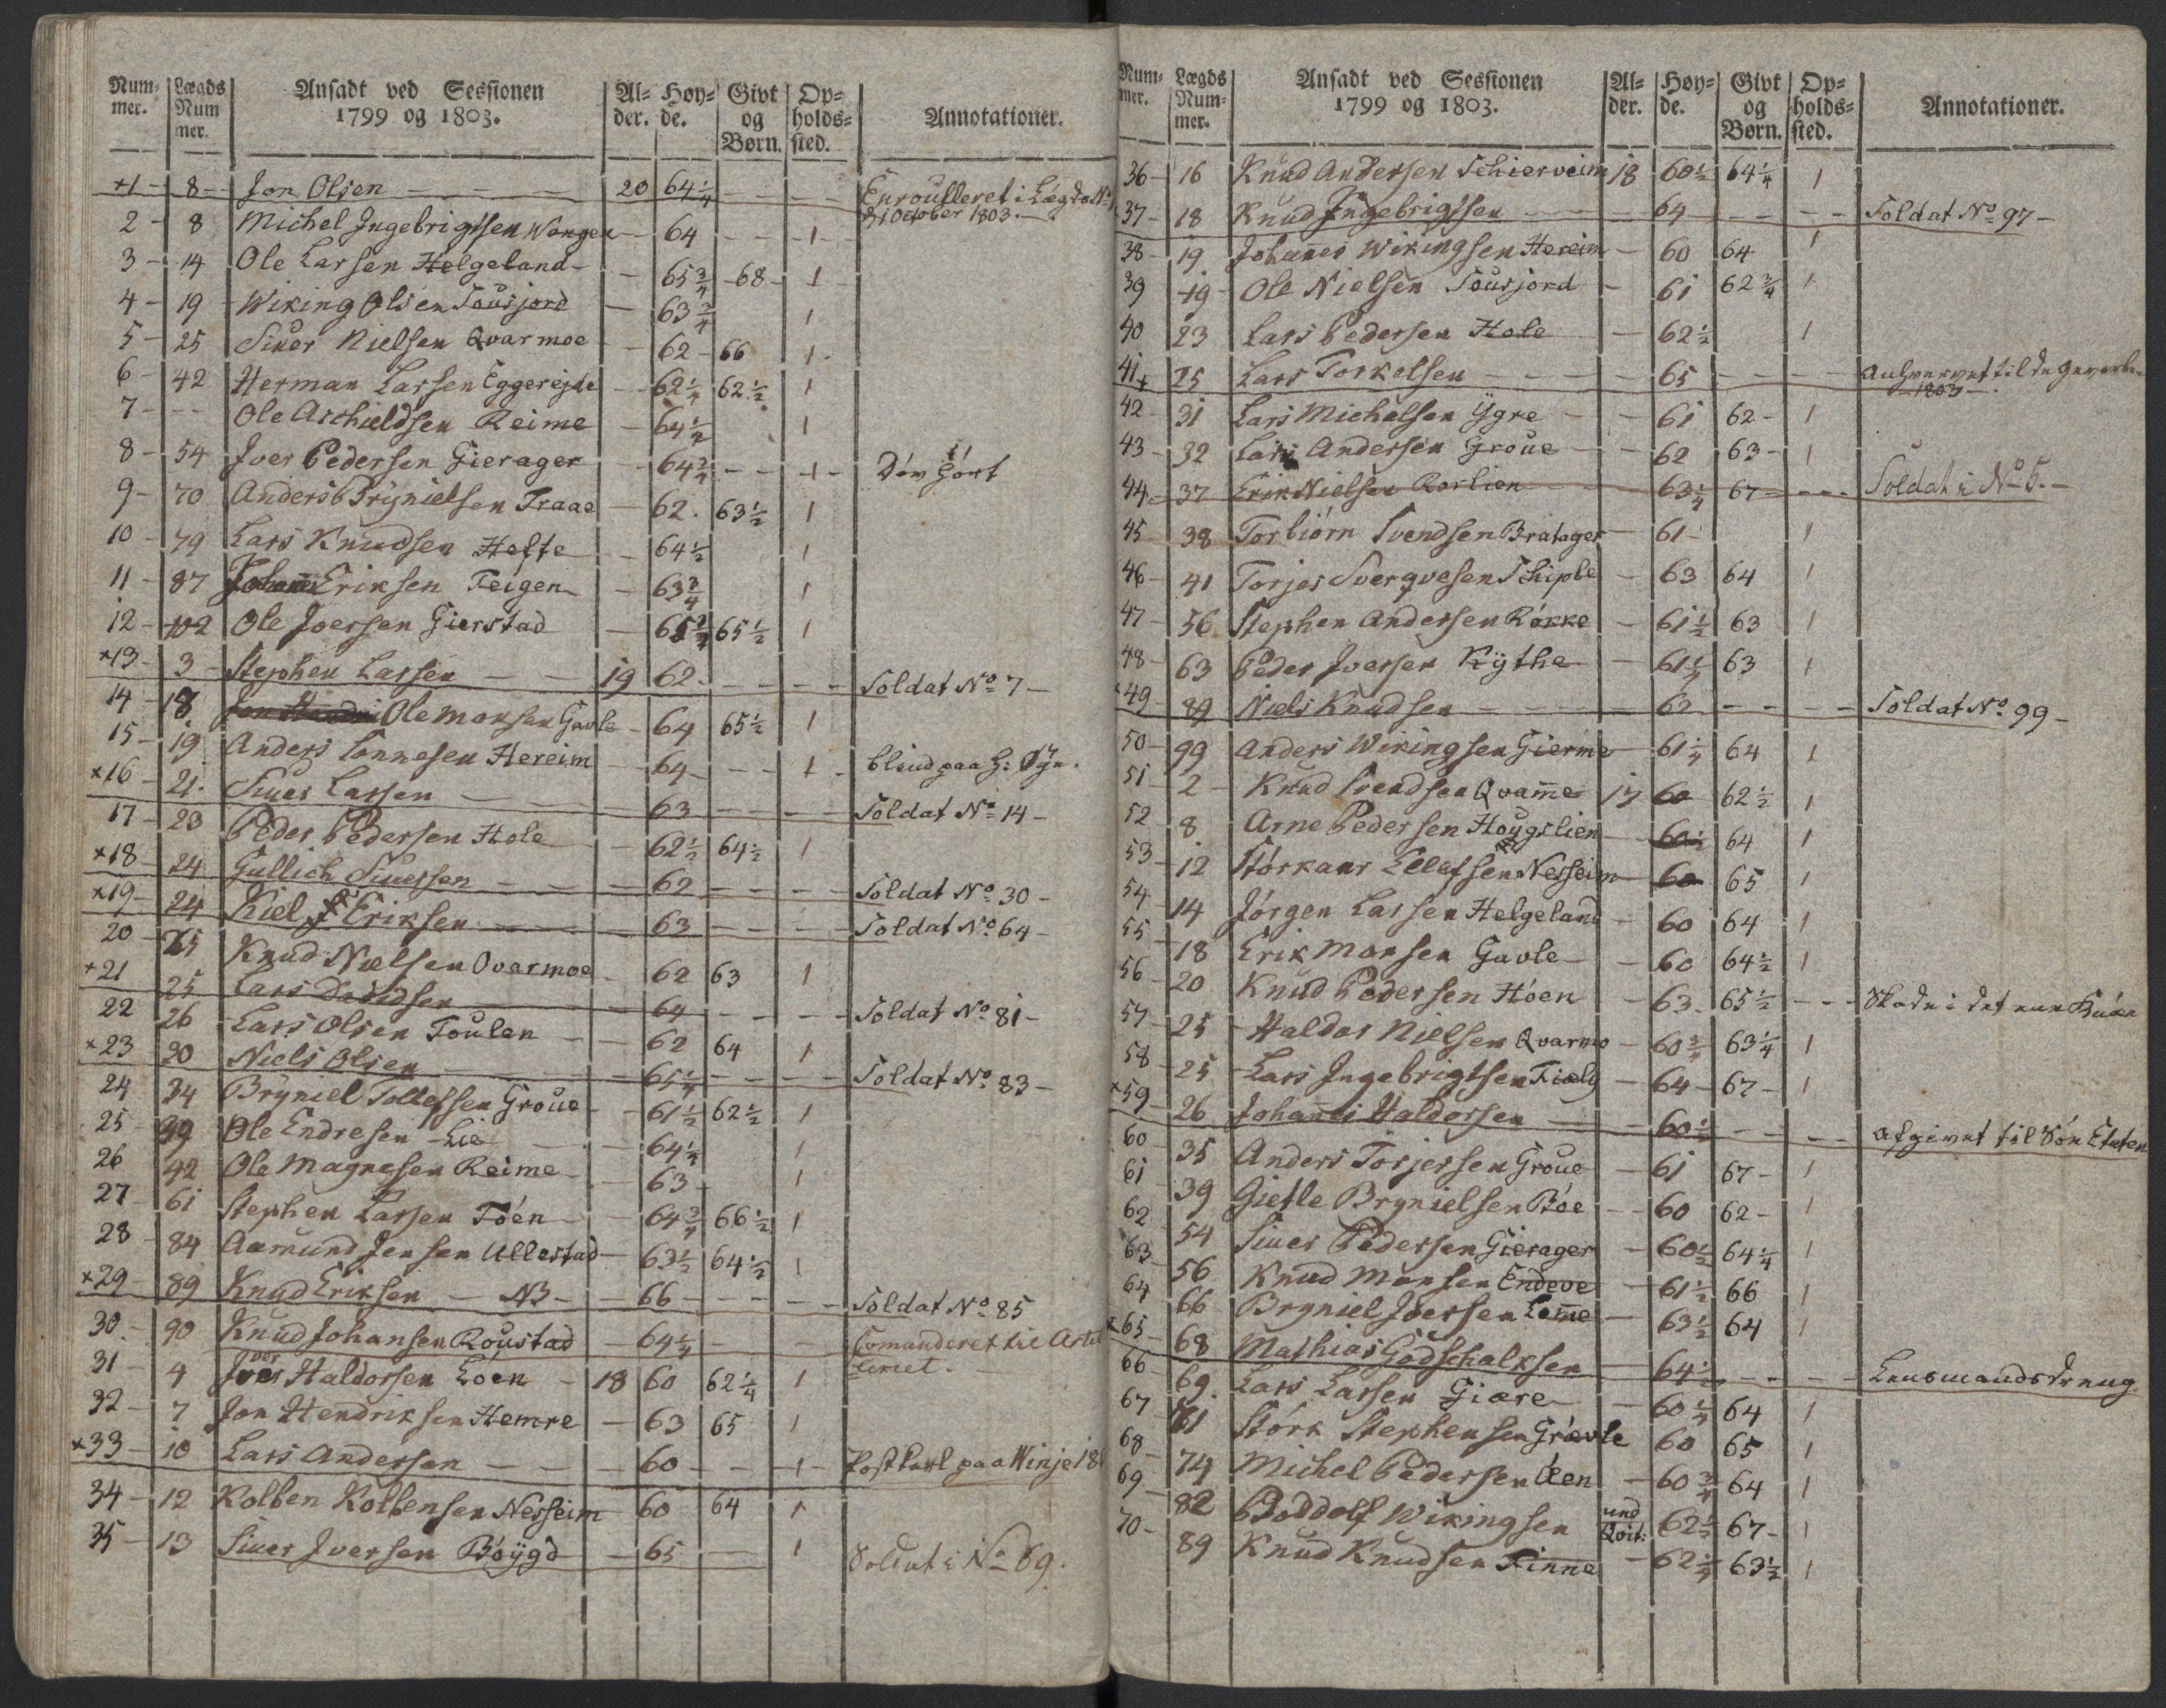 Num- mer. Lægds Num mer. Ansadt ved Sessionen 1799 og 1803. Al- der. Høy- de. Givt og Børn. Op- holds- sted. Annotationer.
+1 - 8 - Jon Olsen - - - 20 64 1/4 - - - Enroulleret i Lægds No
d: 1 October 1803.
2 - 8 Michel Ingebrigtsen Wangen - 64 - - 1
3 - 14 Ole Larsen Helgeland - - 65 3/4 - 68 - 1
4 - 19 Wiking Olsen Sousjord - 63 3/4 1
5 - 25 Siuer Nielsen Qvarmoe - 62 - 66 1
6 - 42 Herman Larsen Eggerejde - 62 1/4 62 1/2 1
7 - - - Ole Aschieldsen Reime - 64 1/2 1
8 - 54 Iver Pedersen Gierager - 64 3/4 - - 1 - Döv hört
9 - 70 Anders Brynielsen Traae - 62. 63 1/2 1
10 - 79 Lars Knudsen Hefte - 64 1/2 1
11 - 87 Johannes Eriksen Feigen - 63 3/4 1
12 - 102 Ole Joersen Gierstad - 65 3/4 65 1/2 1
+13 - 3 - Stephen Larsen - - 19 62 - - - - Soldat No 7 -
14 - 18 Ole Monsen Gavle - 64 65 1/2 1
15 - 19 Anders Sonnesen Hereim - 64 - - 1 - blind paa h: Øye.
×16 - 21. Siuer Larsen - - 63 - - - - Soldat No 14 -
17 - 23 Peder Pedersen Hole - 62 1/2 64 1/2 1
×18 - 24 Gullich Siuersen - - - 62 - - - - Soldat No 30 -
×19 - 24 Kiel Eriksen - - - 63 - - - - Soldat No 64 -
20 - 25 Knud Nielsen Qvarmoe - 62 63 1
×21 25 Lars Davidsen - - 64 - - - - Soldat No 81 -
22 26 Lars Olsen Toulen - - 62 64 1
×23 30 Niels Olsen - - 65 1/4 - - - - Soldat No 83 -
24 34 Bryniel Tollefsen Groue - 61 1/2 62 1/2 1
25 39 Ole Endresen Lie - 64 1/4 1
26 42 Ole Magnesen Reime - 63 - 1
27 - 61 Stephen Larsen Töen - 64 3/4 66 1/2 1
28 - 84 Aamund Jensen Ullestad - 63 1/2 64 1/2 1
×29 - 89 Knud Eriksen - NB - - 66 - - - - Soldat No 85
30 - 90 Knud Johansen Roustad - 64 1/4 - - Comanderet til Artel
leriet.
31 - 4 Iver Haldorsen Loen - 18 60 62 1/4 1
32 - 7 Jon Hendriksen Hemre - 63 65 1
×33 - 10 Lars Andersen - - - 60 - - 1 - Postkarl paa Winje 18
34 - 12 Kolben Kolbensen Nesheim - 60 64 1
35 - 13 Siuer Iversen Böygd - 65 - 1 Soldat i No 69.
Num- mer. Lægds Num- mer. Ansadt ved Sessionen 1799 og 1803. Al- der. Høy- de. Givt og Børn. Op- holds- sted. Annotationer.
36 - 16 Knud Andersen Schierveim 18 60 1/2 64 1/4 1
37 - 18 Knud Ingebrigtsen - - 64 - - - - Soldat No 97 -
38 - 19 Johanes Wikingsen Hereim - 60 64 1
39 - 19 - Ole Nielsen Sousjord - 61 62 3/4 1
40 23 Lars Pedersen Hole - 62 1/2 1
41+ 25 Lars Torkelsen - - - - 65 - - - - til de
1803 -
42 - 31 Lars Michelsen Ygre - - 61 62 - 1
43 - 32 Lars Andersen Groue - - 62 63 - 1
44 - 37 Erik Nielsen Rorlien - - 63 1/4 67 - - - - Soldat i No 5. -
45 - 38 Torbiörn Svendsen Bratager - 61 - 1
46 - 41 Torjer Sverqvesen Schiple - 63 64 1
47 - 56 Stephen Andersen Rökke - 61 1/2 63 1
48 - 63 Peder Iversen Kythe - 61 1/4 63 1
×49 - 89 Niels Knudsen - - - 62 - - - - Soldat No 99 -
50 - 99 Anders Wikingsen Gierme - 61 1/4 64 1
51 - 2 - Knud Svendsen Qvam̄e 17 60 62 1/2 1
52 8 Arne Pedersen Houyslien - 60 1/2 64 1
53 - 12 Störkaar Ellefsen Nesheim - 60 65 1
54 - 14 Jörgen Larsen Helgeland - 60 64 1
55 - 18 Erik Monsen Gavle - 60 64 1/2 1
56 - 20 Knud Pedersen Höen - 63. 65 1/2 - - - Skade i det ene Knæe
57 - 25 - Haldor Nielsen Qvarmo - 60 3/4 63 1/4 1
58 - 25 - Lars Ingebrigtsen Fiæly - 64 - 67 - 1
×59 - 26 Johannes Haldorsen - - 60 1/2 - - - - Afgivet til Söe Etaten
60 - 35 Anders Torjersen Groue - 61 67 - 1
61 - 39 Gietle Brynielsen Böe - - 60 62 - 1
62 - 54 Siuer Pedersen Gierager - 60 1/2 64 1/4 1
63 - 56 Knud Monsen Endeve - 61 1/2 66 1
64 - 66 Bryniel Joersen Lem̄e - 63 1/2 64 1
×65 - 68 Mathias Godschalksen - 64 1/2 - - - - Lensmands Dreng
66 - 69. Lars Larsen Giære - - 60 1/4 64 1
67 - 71 Störk Stephensen Grövle 60 65 1
68 - 74 Michel Pedersen Øen - 60 3/4 64 1
69 - 82 Boddolf Wikingsen und Qvit: 62 1/2 67 - 1
70 - 89 Knud Knudsen Finne - 62 1/4 63 1/2 1